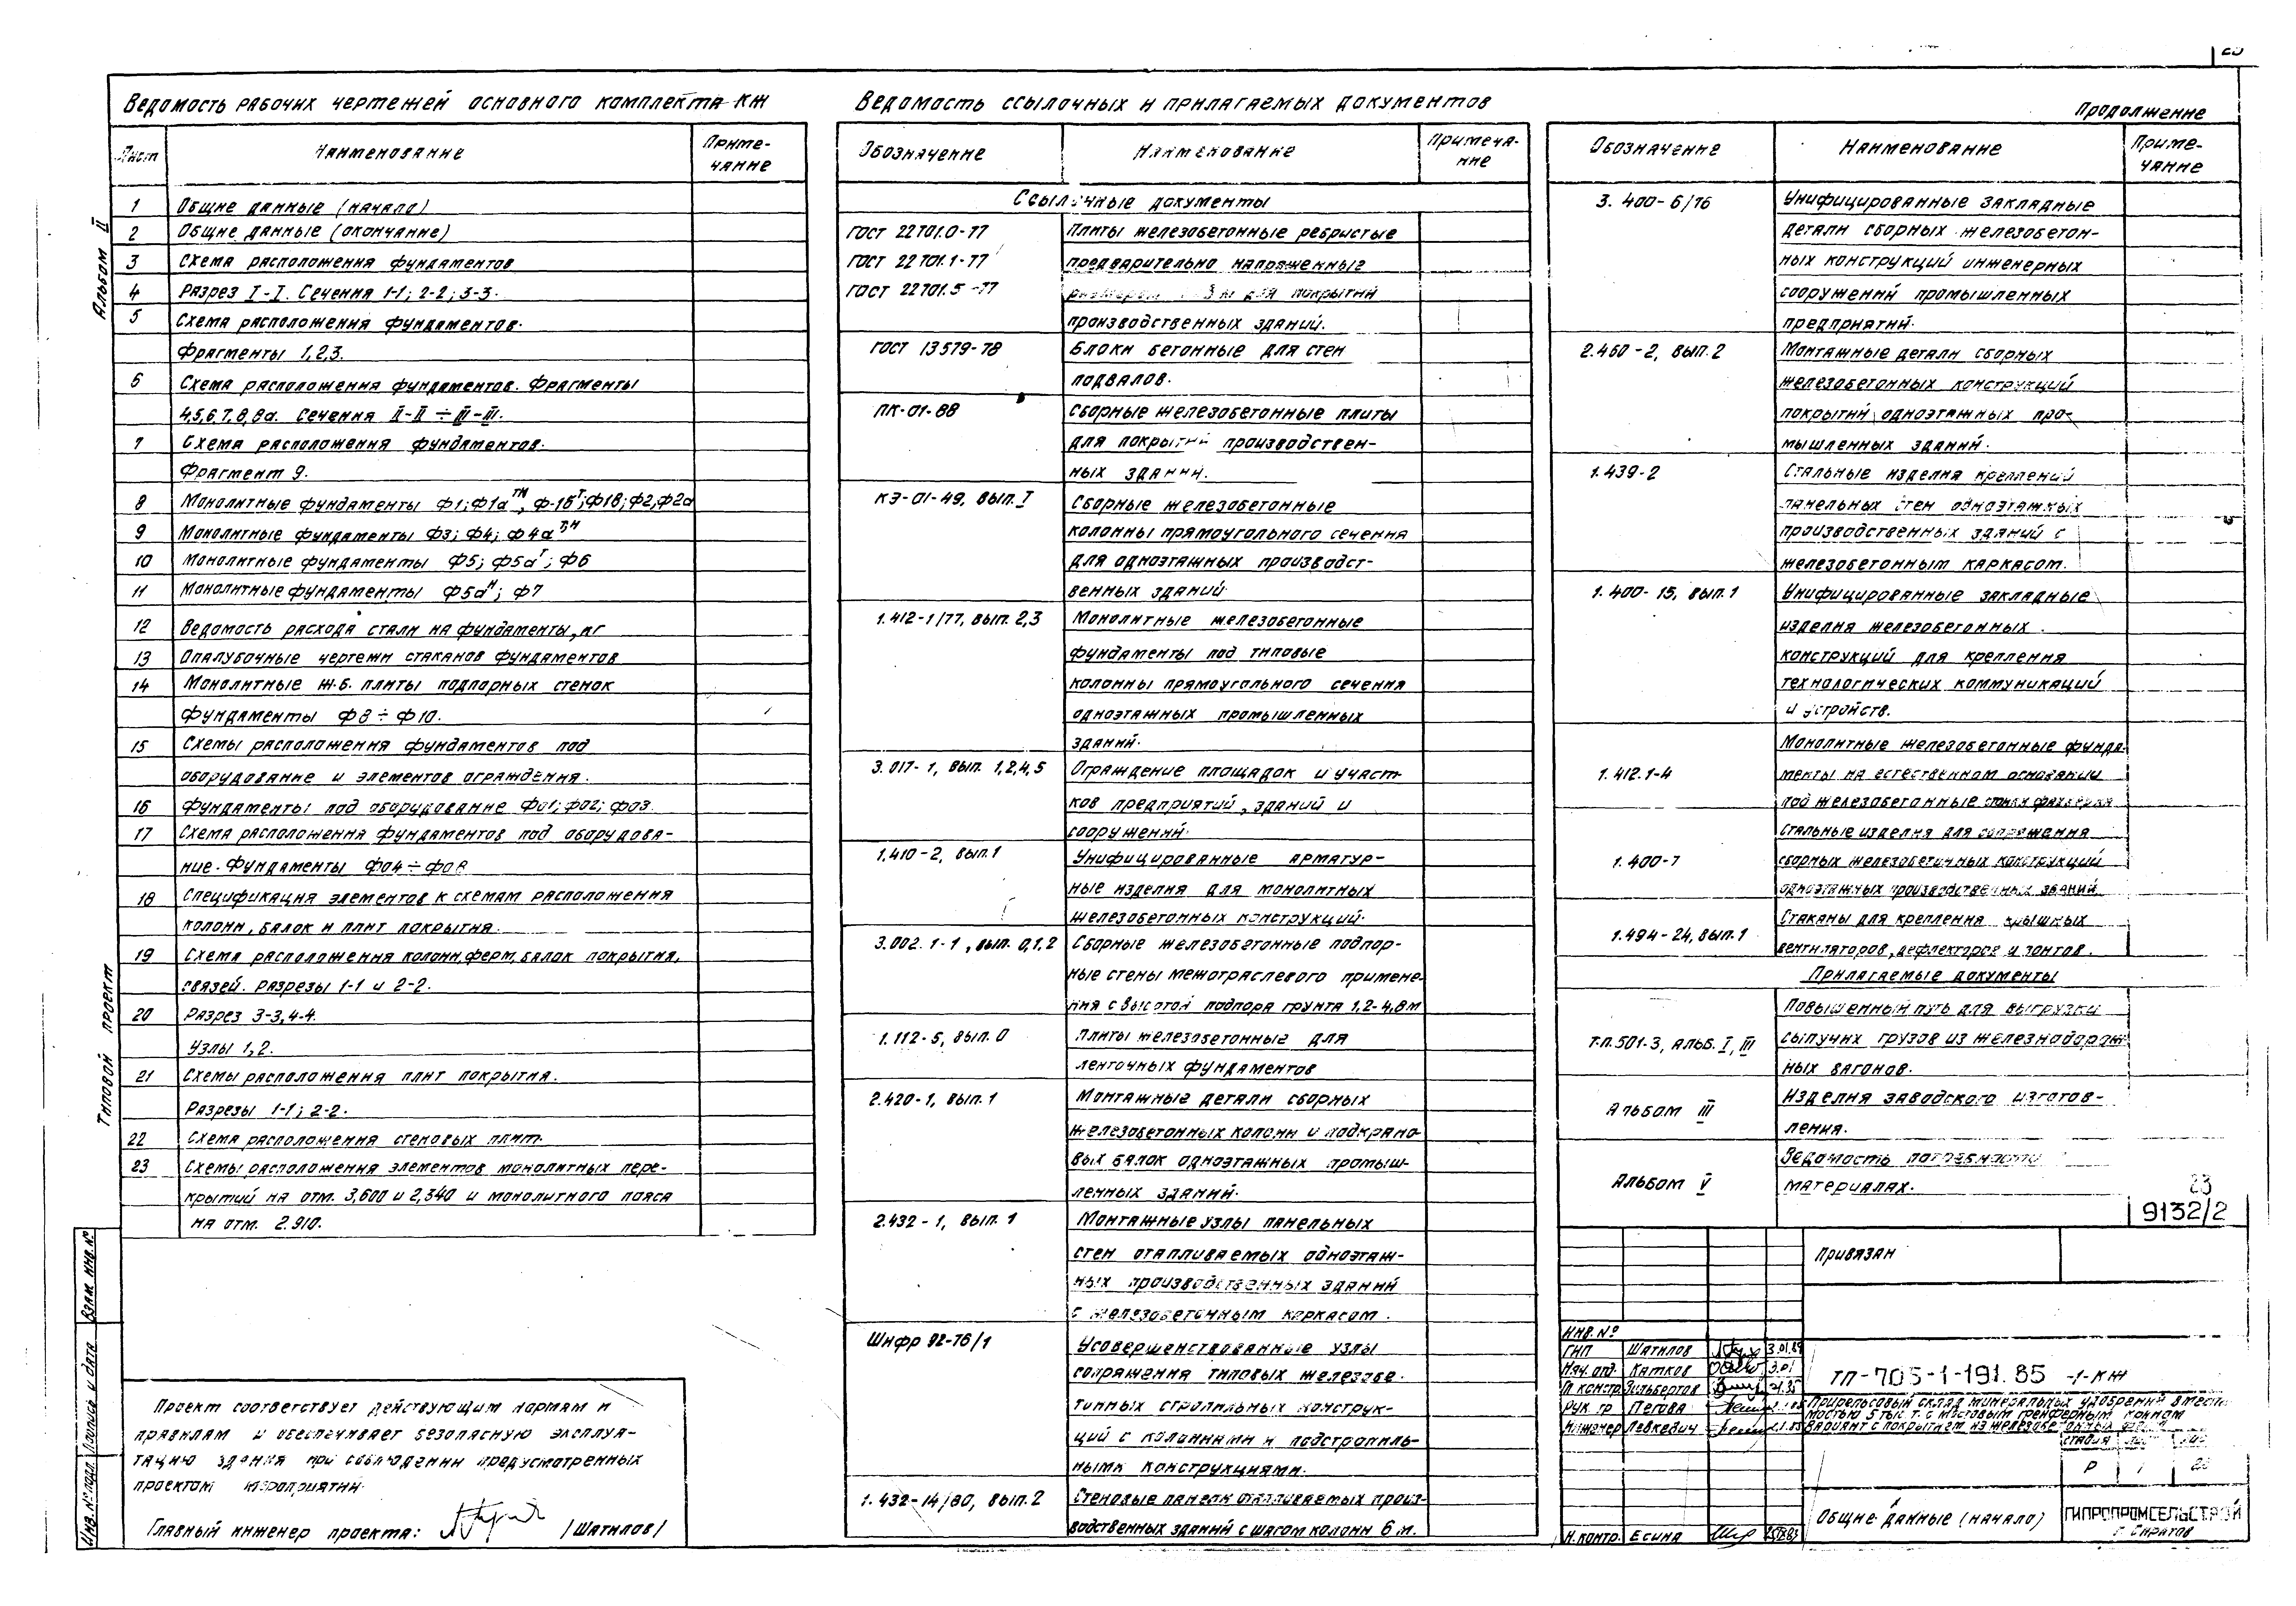 Альбом II
Типовой проект
Ведомость рабочих чертежей основного комплекта КЖ
Лист
Наименование
Приме-
чание
1 Общие данные (начало)
2 Общие данные (окончание)
3 Схема расположения фундаментов
4 Разрез I-I. Сечения 1-1; 2-2; 3-3.
5 Схема расположения фундаментов.
Фрагменты 1,2,3.
6 Схема расположения фундаментов. Фрагменты
4,5,6,7,8,8а. Сечения II-II ÷ III-III.
7 Схема расположения фундаментов.
Фрагмент 9.
8 Монолитные фундаменты Ф1; Ф1а ТН, Ф-1Б Т; Ф1В; Ф2; Ф2а
9 Монолитные фундаменты Ф3; Ф4; Ф4а Т,Н
10 Монолитные фундаменты Ф5; Ф5а Т; Ф6
11 Монолитные фундаменты Ф5а Н; Ф7
12 Ведомость расхода стали на фундаменты, кг
13 Опалубочные чертежи стаканов фундаментов
14 Монолитные ж.б. плиты подпорных стенок
фундаменты Ф8 ÷ Ф10.
15 Схемы расположения фундаментов под
оборудование и элементов ограждения.
16 Фундаменты под оборудование Фо1; Фо2; Фо3.
17 Схема расположения фундаментов под оборудова-
ние. Фундаменты Фо4 ÷ Фо8
18 Спецификация элементов к схемам расположения
колонн, балок и плит покрытия.
19 Схема расположения колонн, ферм, балок покрытия,
связей. Разрезы 1-1 и 2-2.
20 Разрез 3-3, 4-4.
Узлы 1,2.
21 Схемы расположения плит покрытия.
Разрезы 1-1; 2-2.
22 Схема расположения стеновых плит.
23 Схемы расположения элементов монолитных пере-
крытий на отм. 3,600 и 2,340 и монолитного пояса
на отм. 2.910.
Проект соответствует действующим нормам и
правилам и обеспечивает безопасную эксплуа-
тацию здания при соблюдении предусмотренных
проектом мероприятий.
Главный инженер проекта: /Шатилов/
Взам. инв. №
Подпись и дата
Инв. № подл.
Ведомость ссылочных и прилагаемых документов
Обозначение
Наименование
Примеча-
ние
Ссылочные документы
ГОСТ 22701.0-77 Плиты железобетонные ребристые
ГОСТ 22701.1-77 предварительно напряженные
ГОСТ 22701.5-77 размером 3 м для покрытий
производственных зданий.
ГОСТ 13579-78 Блоки бетонные для стен
подвалов.
ПК-01-88 Сборные железобетонные плиты
для покрытий производствен-
ных зданий.
КЭ-01-49, вып. I Сборные железобетонные
колонны прямоугольного сечения
для одноэтажных производст-
венных зданий.
1.412-1/77, вып. 2,3 Монолитные железобетонные
фундаменты под типовые
колонны прямоугольного сечения
одноэтажных промышленных
зданий.
3.017-1, вып. 1,2,4,5 Ограждение площадок и участ-
ков предприятий, зданий и
сооружений.
1.410-2, вып.1 Унифицированные арматур-
ные изделия для монолитных
железобетонных конструкций.
3.002.1-1, вып. 0,1,2 Сборные железобетонные подпор-
ные стены межотраслевого примене-
ния с высотой подпора грунта 1,2-4,8м
1.112-5, вып. 0 Плиты железобетонные для
ленточных фундаментов
2.420-1, вып. 1 Монтажные детали сборных
железобетонных колонн и подкрано-
вых балок одноэтажных промыш-
ленных зданий.
2.432-1, вып. 1 Монтажные узлы панельных
стен отапливаемых одноэтаж-
ных производственных зданий
с железобетонным каркасом.
Шифр 92-76/1 Усовершенствованные узлы
сопряжения типовых железобе-
тонных стропильных конструк-
ций с колоннами и подстропиль-
ными конструкциями.
1.432-14/80, вып. 2 Стеновые панели отапливаемых произ-
водственных зданий с шагом колонн 6 м.
Продолжение
Обозначение
Наименование
Приме-
чание
3.400-6/76 Унифицированные закладные
детали сборных железобетон-
ных конструкций инженерных
сооружений промышленных
предприятий.
2.460-2, вып. 2 Монтажные детали сборных
железобетонных конструкций
покрытий одноэтажных про-
мышленных зданий.
1.439-2 Стальные изделия креплений
панельных стен одноэтажных
производственных зданий с
железобетонным каркасом.
1.400-15, вып. 1 Унифицированные закладные
изделия железобетонных
конструкций для крепления
технологических коммуникаций
и устройств.
Монолитные железобетонные фунда-
1.412.1-4 менты на естественном основании
под железобетонные стойки фахверка
Стальные изделия для сопряжения
1.400-7 сборных железобетонных конструкций
одноэтажных производственных зданий
Стаканы для крепления крышных
1.494-24, вып.1 вентиляторов, дефлекторов и зонтов.
Прилагаемые документы
Повышенный путь для выгрузки
Т.П.501-3, Альб. I, III сыпучих грузов из железнодорож-
ных вагонов.
Альбом III Изделия заводского изготов-
ления.
Альбом V Ведомость потребности
материалах.
23
9132/2
Привязан
Инв. №
ГИП Шатилов
Нач. отд. Катков
Гл. констр. Зильбертов
Рук. гр Пегова
Инженер Левкевич
Н. контр. Есина
ТП-705-1-191.85 -1-КЖ
Прирельсовый склад минеральных удобрений вмести-
мостью 5 тыс. т. с мостовым грейферным краном
Вариант с покрытием из железобетонных
Стадия
Р
Общие данные (начало)
ГИПРОПРОМСЕЛЬСТРОЙ
г. Саратов